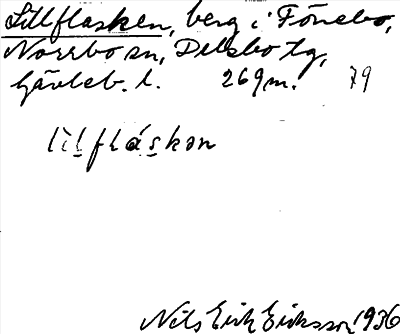 Lillflasken, berg i Fönebo,
Norrbo sn, Delsbo tg,
Gävleb. l. 269 m. 79
lilflàskən
Nils Erik Eriksson 1936